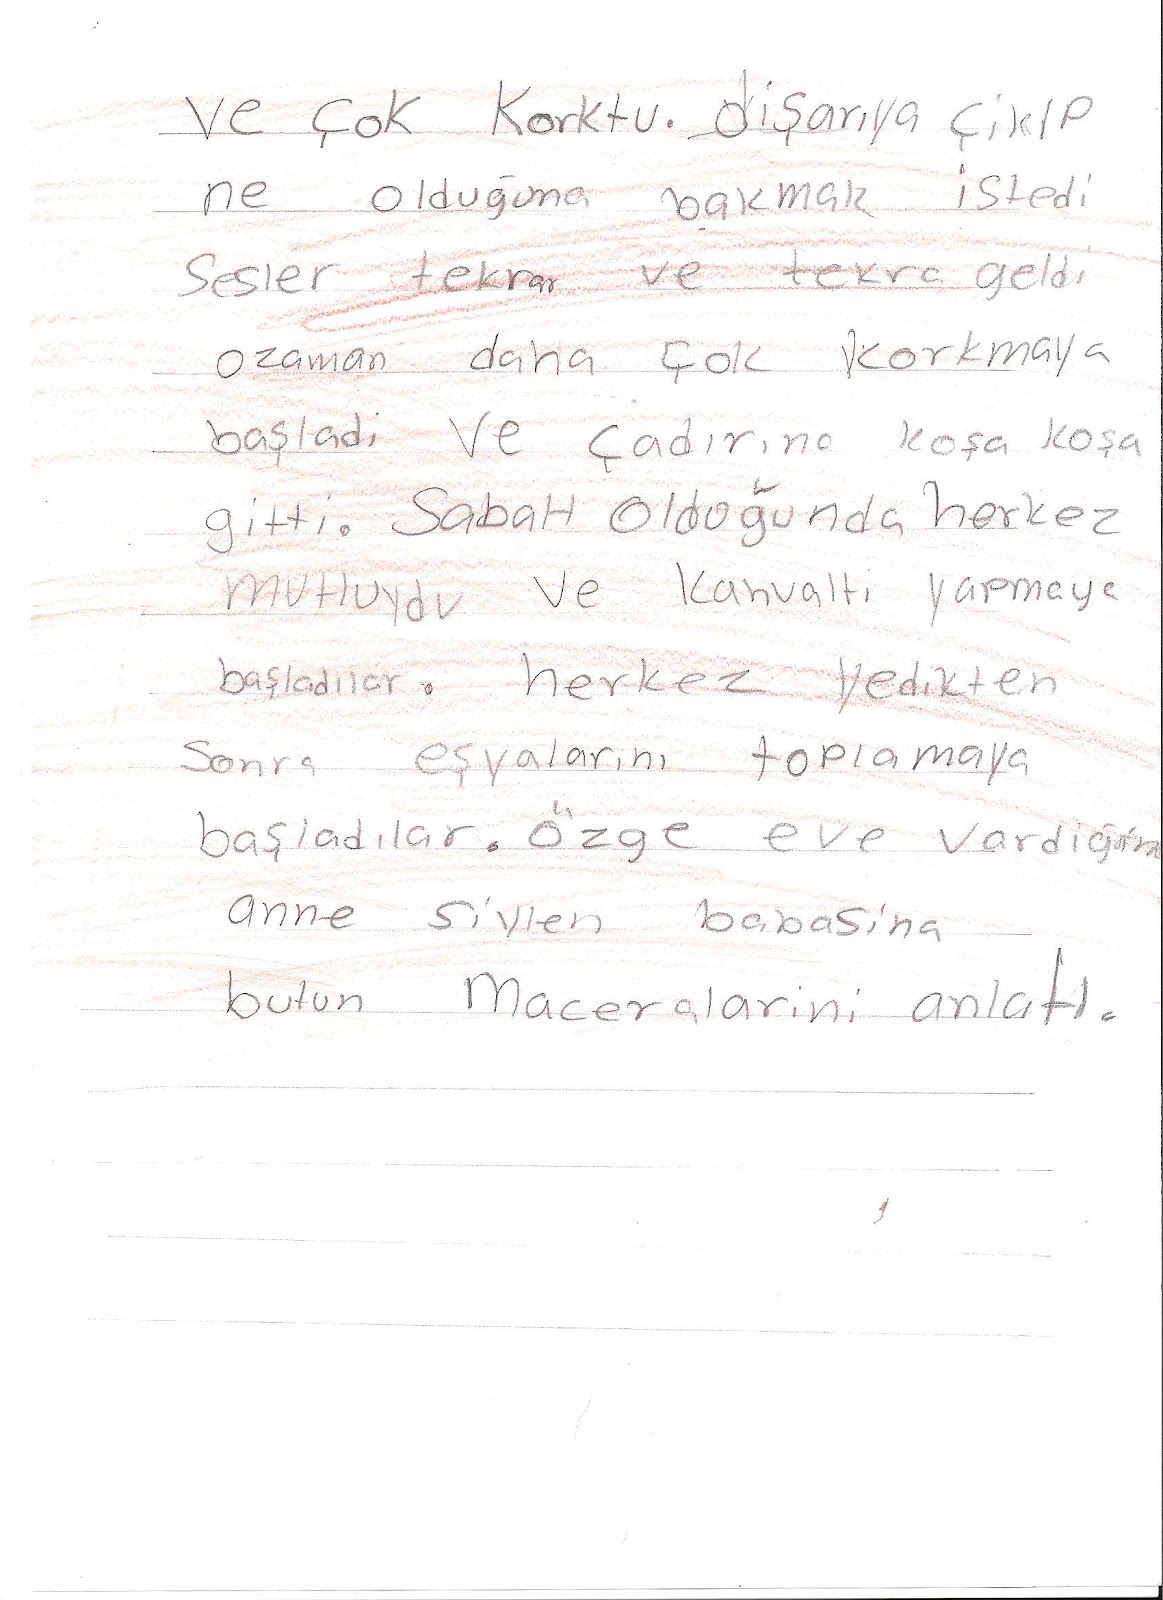 ve çok korktu. dişarıya çikıp
ne olduğuna bakmak istedi
Sesler tekrar ve tekra geldi
ozaman daha çok korkmaya
başladi ve çadırına koşa koşa
gitti. Sabah olduğunda herkez
mutluydu ve kahvalti yapmaya
başladılar. herkez yedikten
sonra eşyalarını toplamaya
başladılar. Özge eve
anne babasina
butun Maceralarini anlattı.